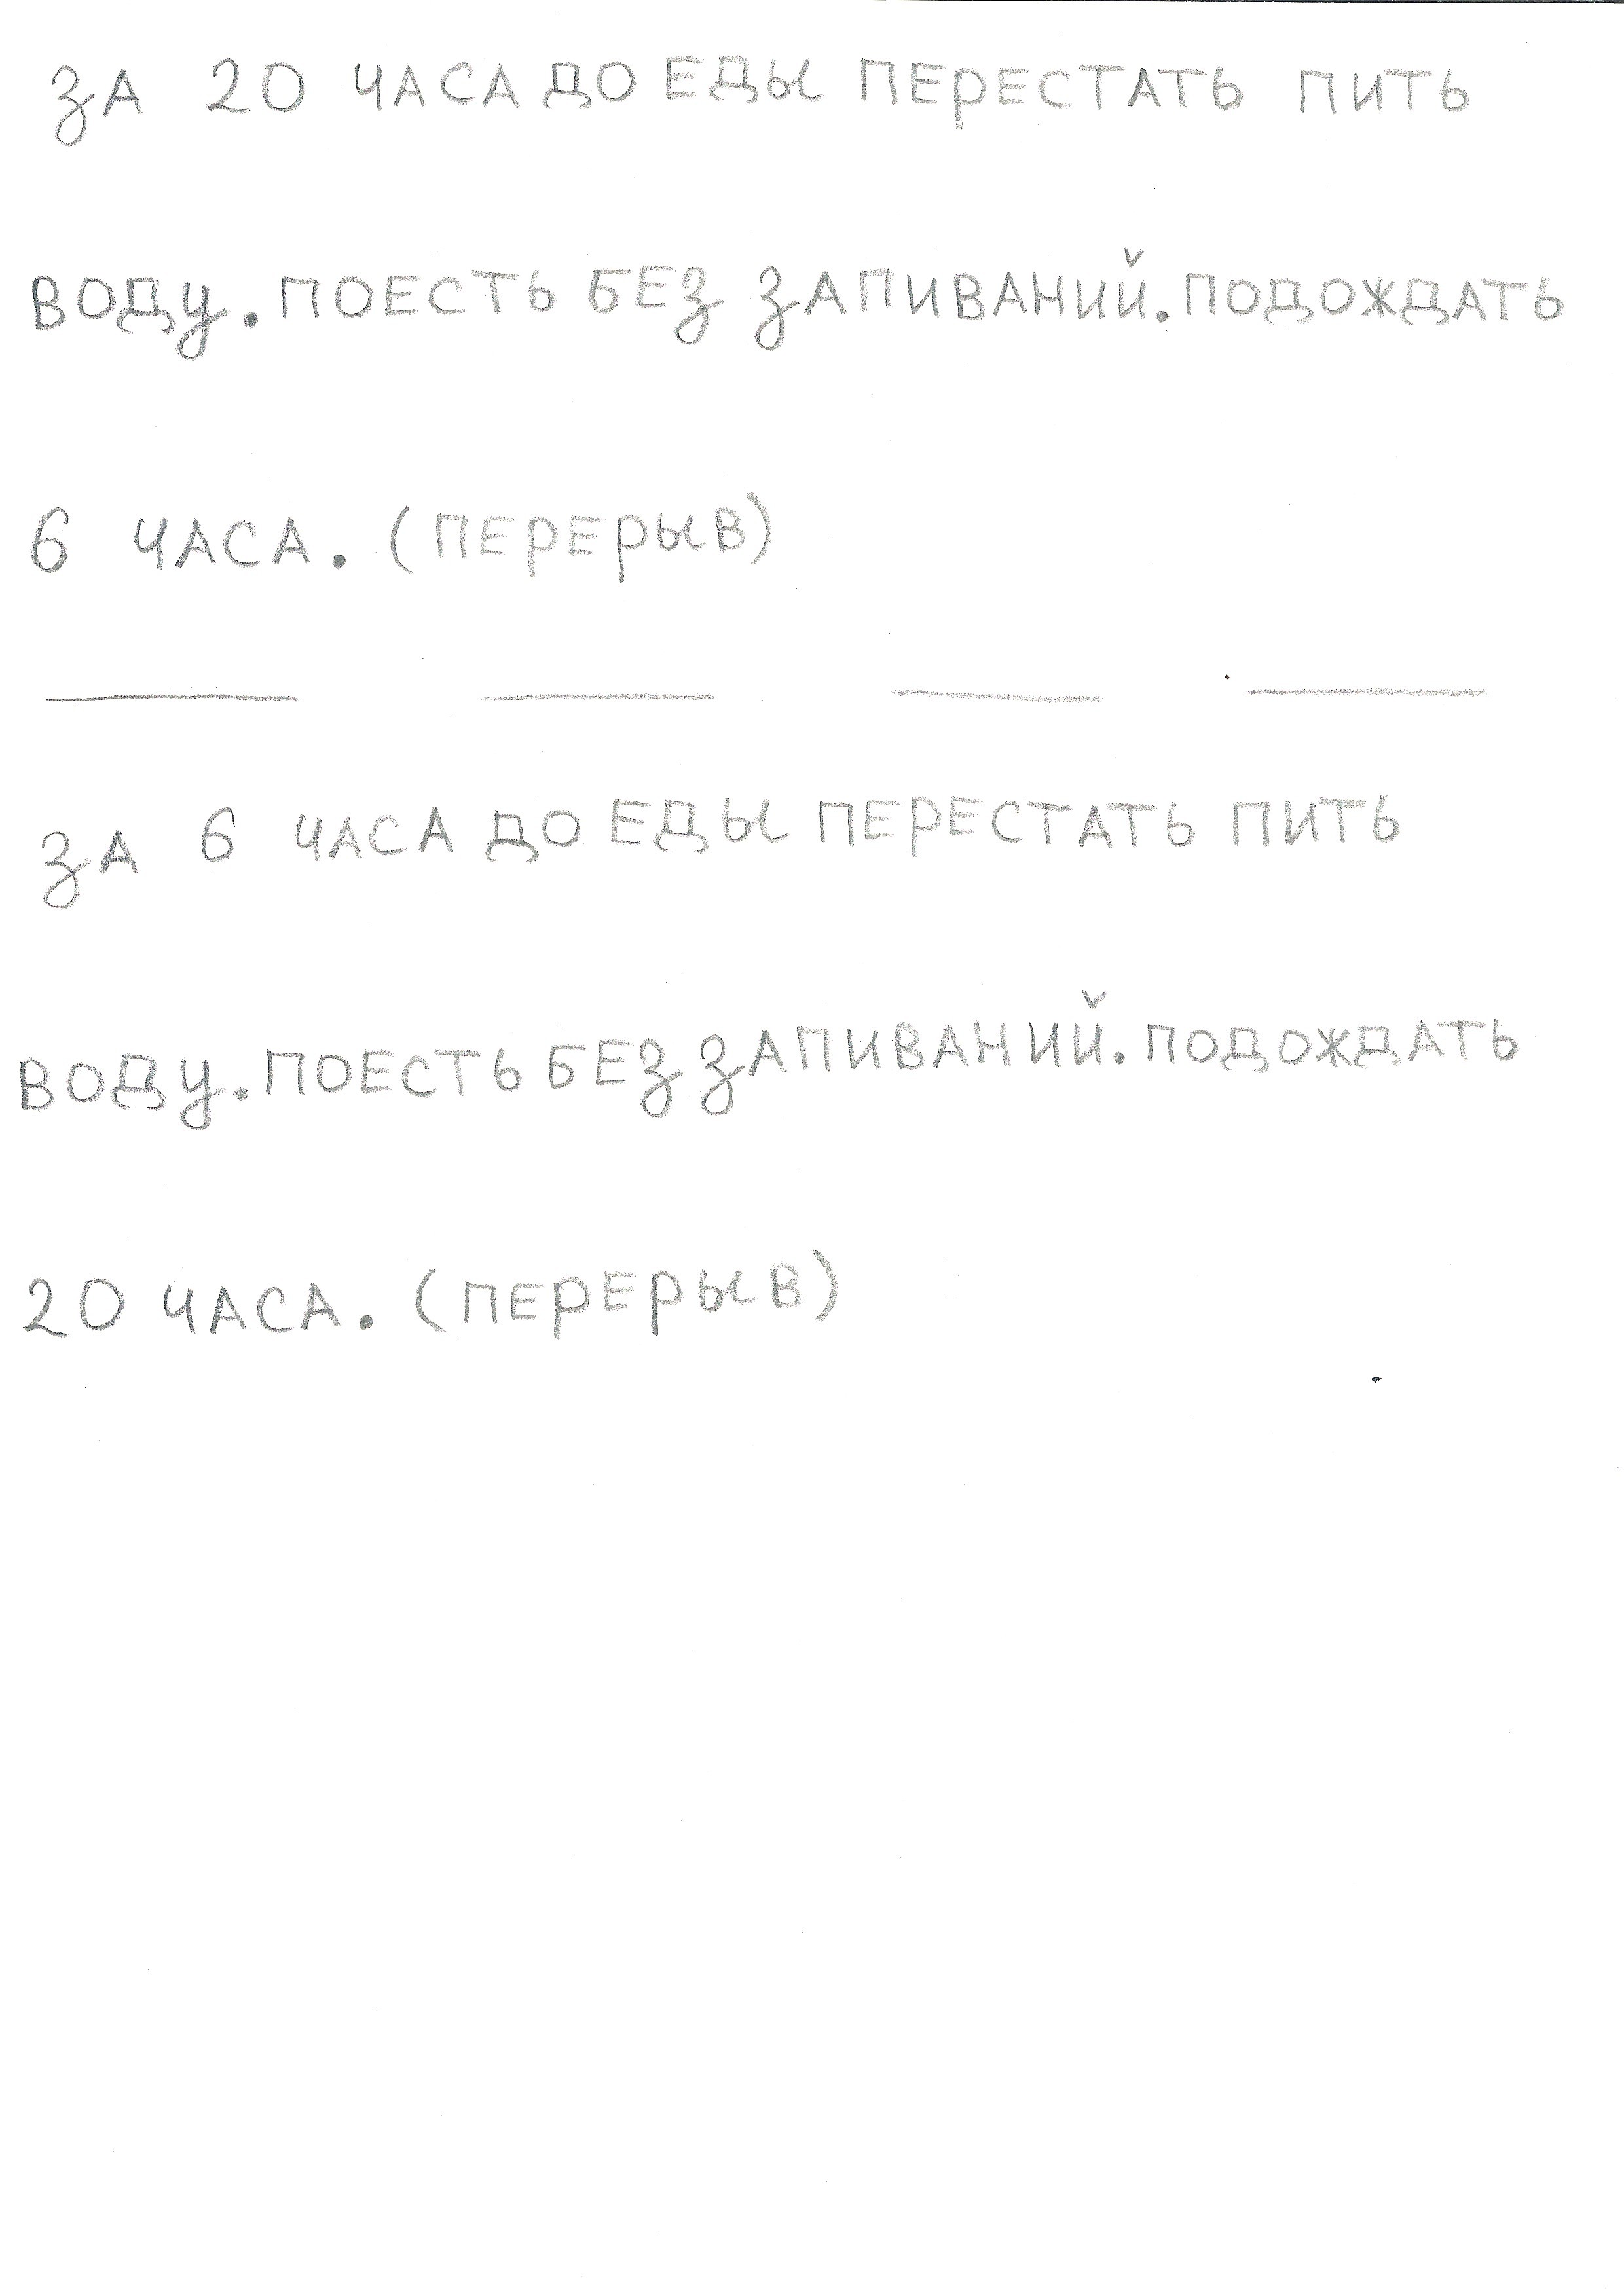 ЗА 20 ЧАСА ДО ЕДЫ ПЕРЕСТАТЬ ПИТЬ
ВОДУ. ПОЕСТЬ БЕЗ ЗАПИВАНИЙ. ПОДОЖДАТЬ
6 ЧАСА. (ПЕРЕРЫВ)
ЗА 6 ЧАСА ДО ЕДЫ ПЕРЕСТАТЬ ПИТЬ
ВОДУ. ПОЕСТЬ БЕЗ ЗАПИВАНИЙ. ПОДОЖДАТЬ
20 ЧАСА. (ПЕРЕРЫВ)